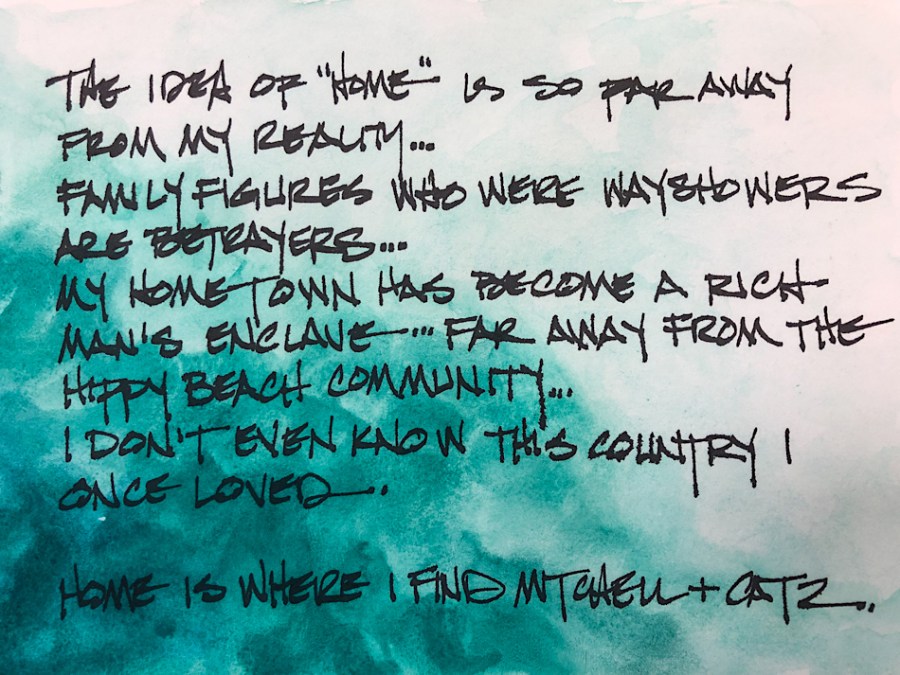 THE IDEA OF "HOME" IS SO FAR AWAY
FROM MY REALITY...
FAMILY FIGURES WHO WERE WAYSHOWERS
ARE BETRAYERS...
MY HOMETOWN HAS BECOME A RICH
MAN'S ENCLAVE... FAR AWAY FROM THE
HIPPY BEACH COMMUNITY...
I DON'T EVEN KNOW THIS COUNTRY I
ONCE LOVED.
HOME IS WHERE I FIND MITCHELL + CATZ.